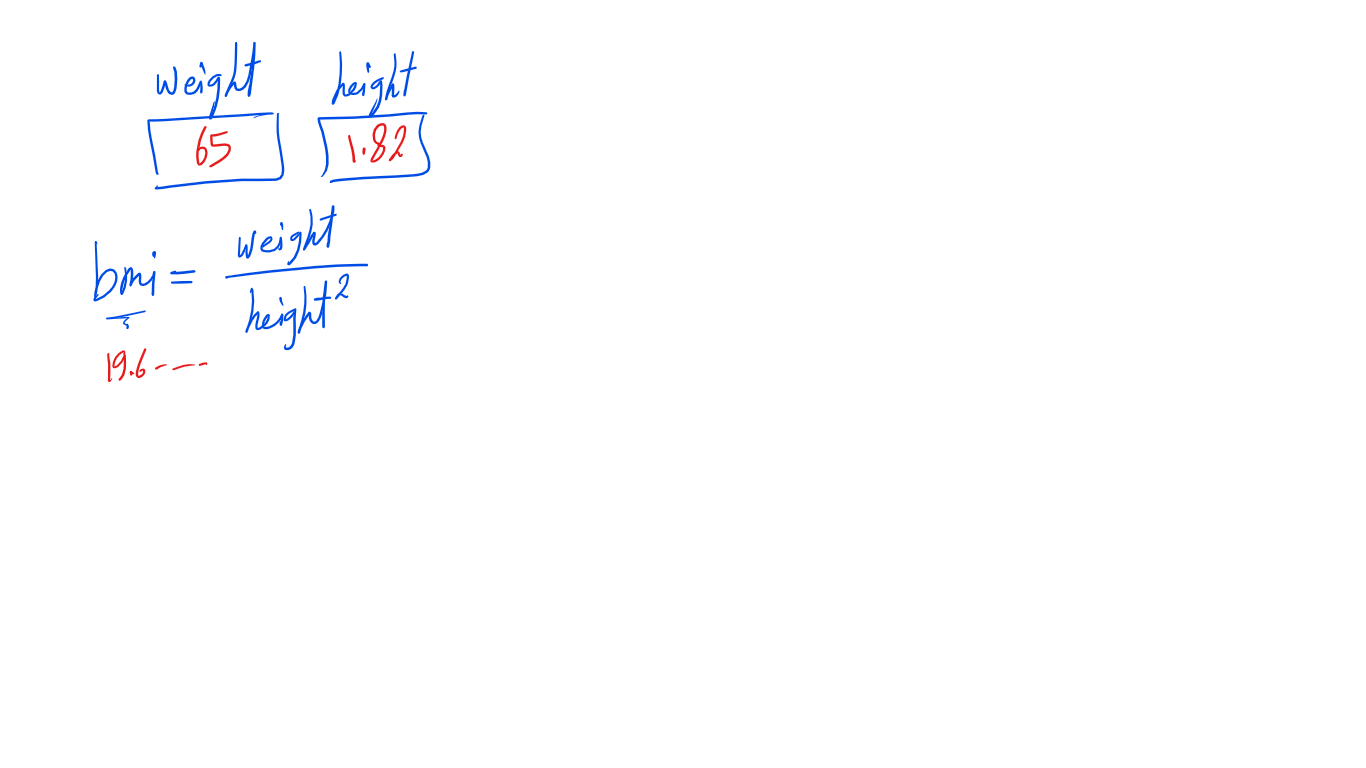 weight height
65 1.82
bmi = weight / height²
19.6 ----